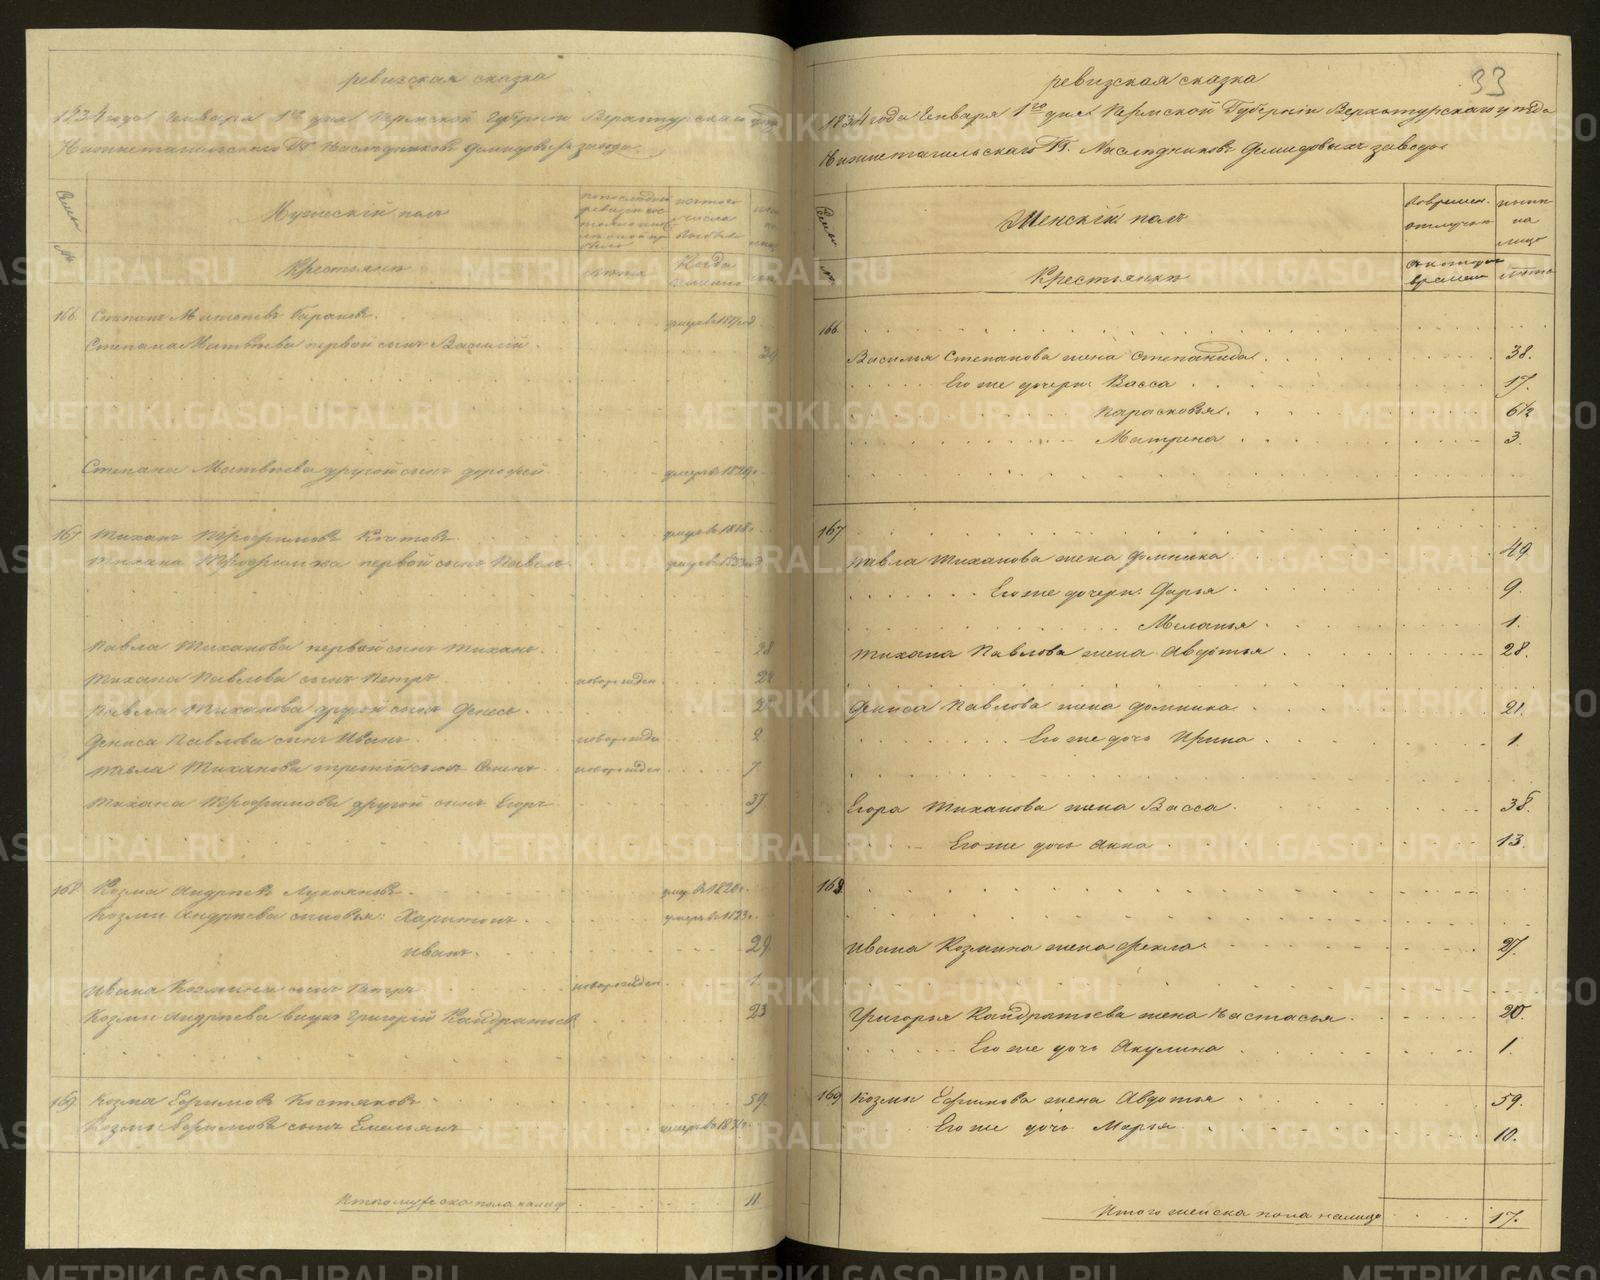 ревизская сказка
1834 года Января 1го дня Пермской Губернии Верхотурскаго
Нижнетагильскаго Гг. Наследников Демидовых завода
Семьи
Мужеский пол
Крестьяне
лета
Когда
166. Степан Матвеев
умер в 18
Степана Матвеева первой сын Василий.
Степана Матвеева другой сын Дорофей
167 Тихан Трофимов
умер в 1818
Тихана Трофимова первой сын Павел
умер в 1833
Павла Тиханова первой сын Тихано. 28
Тихана Павлова сын Петр новорожден
Павла Тиханова другой сын Денис.
Дениса Павлова сын Иван. новорожден 2
Павла Тиханова третий сын новорожден 7
Тихана Трофимова другой сын Егор 37
168 Козма Андреев Лукоянов.
Козмы Андреева сыновья: Харитон. умер в 1823
Иван. 29
Ивана Козмина сын Петр новорожден 1
Козмы Андреева внук Григорий Кандратьев 23
169 Козма Ефимов Костяков 59.
Козмы Ефимова сын Емельян
Итого мужеска пола налицо 11.
33
ревизская сказка
1834 года Января 1го дня Пермской Губернии Верхотурскаго уезда
Нижнетагильскаго Гг. Наследников Демидовых завода
Семьи
Женский пол
Во времен. отлучке
ныне на лицо
Крестьянки
с котораго времени
лета
166.
Василья Степанова жена Степанида. 38.
Его же дочери: Васса 17.
Парасковья. 6½
Матрена 3.
167
Павла Тиханова жена Домника 49.
Его же дочери: Дарья 9.
Меланья 1.
Тихана Павлова жена Авдотья 28.
Дениса Павлова жена Домника 21.
Его же дочь Ирина 1.
Егора Тиханова жена Васса 38.
Его же дочь Анна 13.
168
Ивана Козмина жена Фекла 27.
Григорья Кандратьева жена Настасья 20.
Его же дочь Акулина 1.
169 Козмы Ефимова жена Авдотья 59.
Его же дочь Марья 10.
Итого женска пола налицо 17.
METRIKI.GASO-URAL.RU